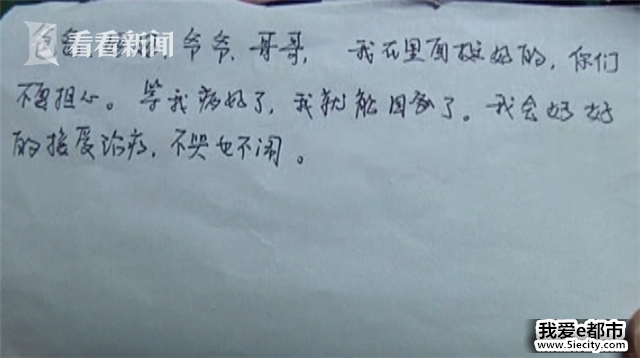 看看新闻
爷爷，哥哥，我在里面挺好的，你们
不要担心。等我病好了，我就能回家了。我会好好
的接受治病，不哭也不闹。
我爱e都市
www.5iecity.com